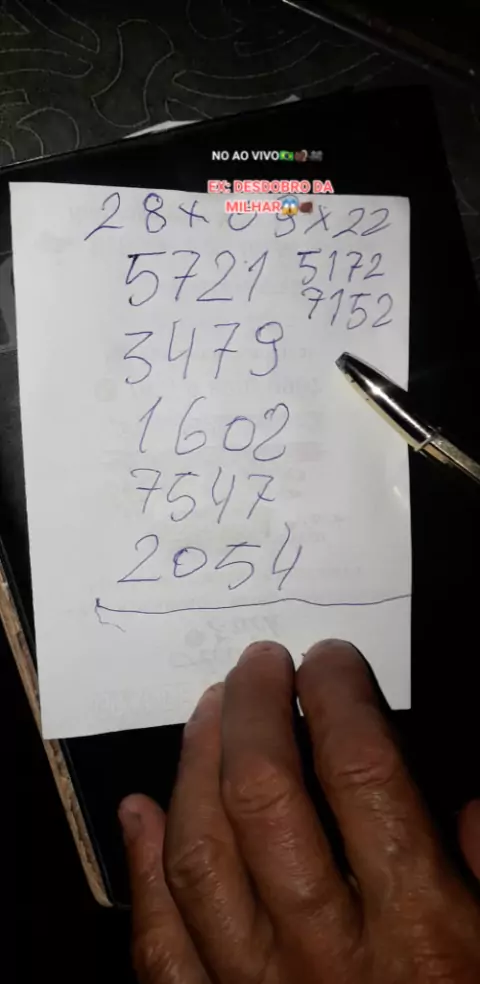 NO AO VIVO
EX: DESDOBRO DA
MILHAR
28x09x22
5721 5172
7152
3479
1602
7547
2054